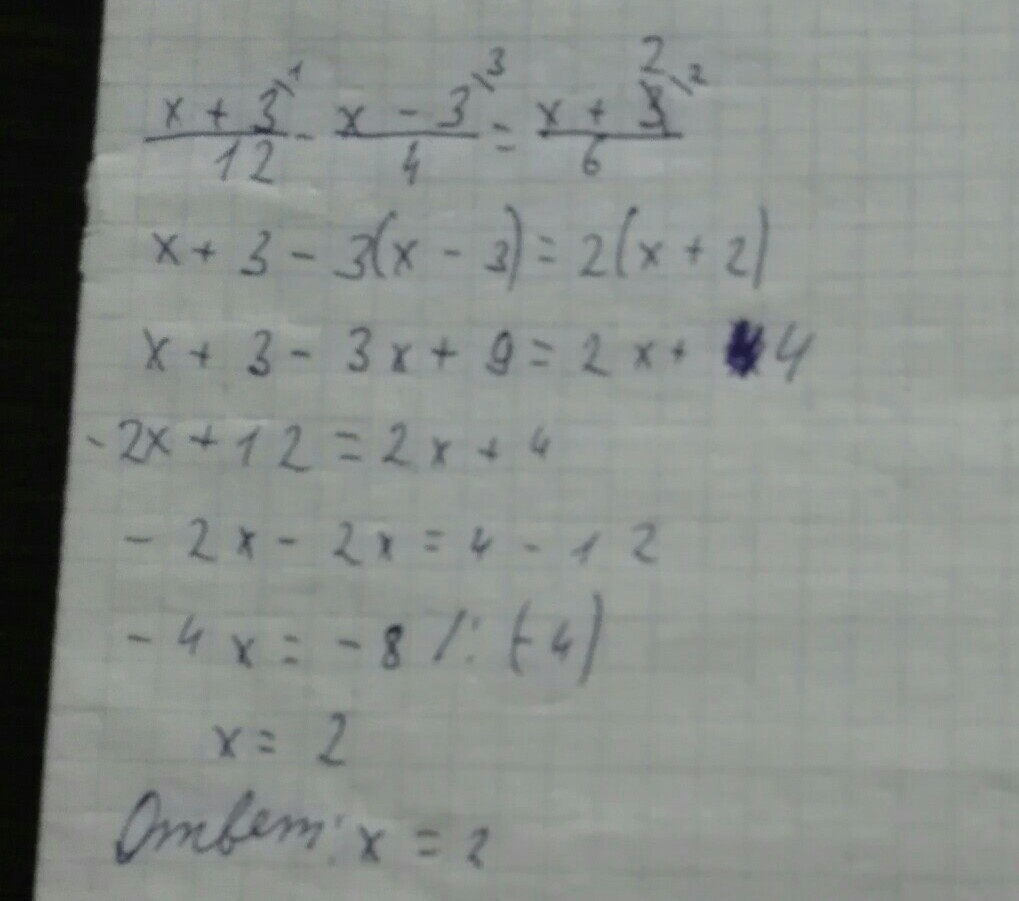 (x + 3\1)/12 - (x - 3\3)/4 = (x + 2\2)/6
x + 3 - 3(x - 3) = 2(x + 2)
x + 3 - 3x + 9 = 2x + 4
-2x + 12 = 2x + 4
- 2x - 2x = 4 - 12
- 4x = - 8 /: (-4)
x = 2
Ответ: x = 2